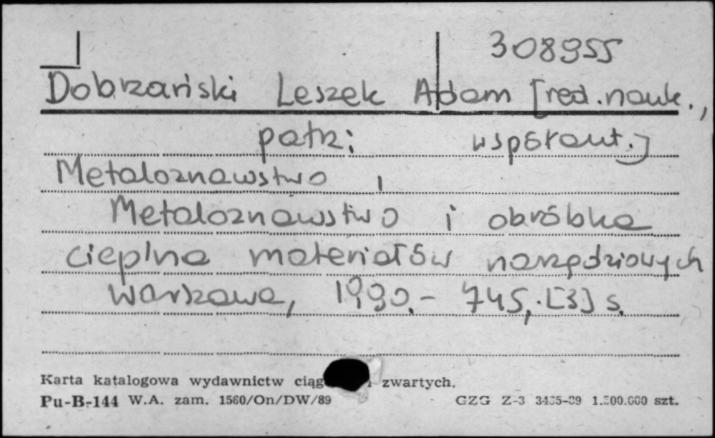 308955
Dobrzański Leszek Adam [red. nauk.,
patrz: współaut.]
Metaloznawstwo i
Metaloznawstwo i obróbka
cieplna materiałów narzędziowych
Warszawa, 1990.- 745,.[3] s.
Karta katalogowa wydawnictw zwartych.
Pu-B-144 W.A. zam. 1560/On/DW/89 GZG Z-3 1.500.000 szt.